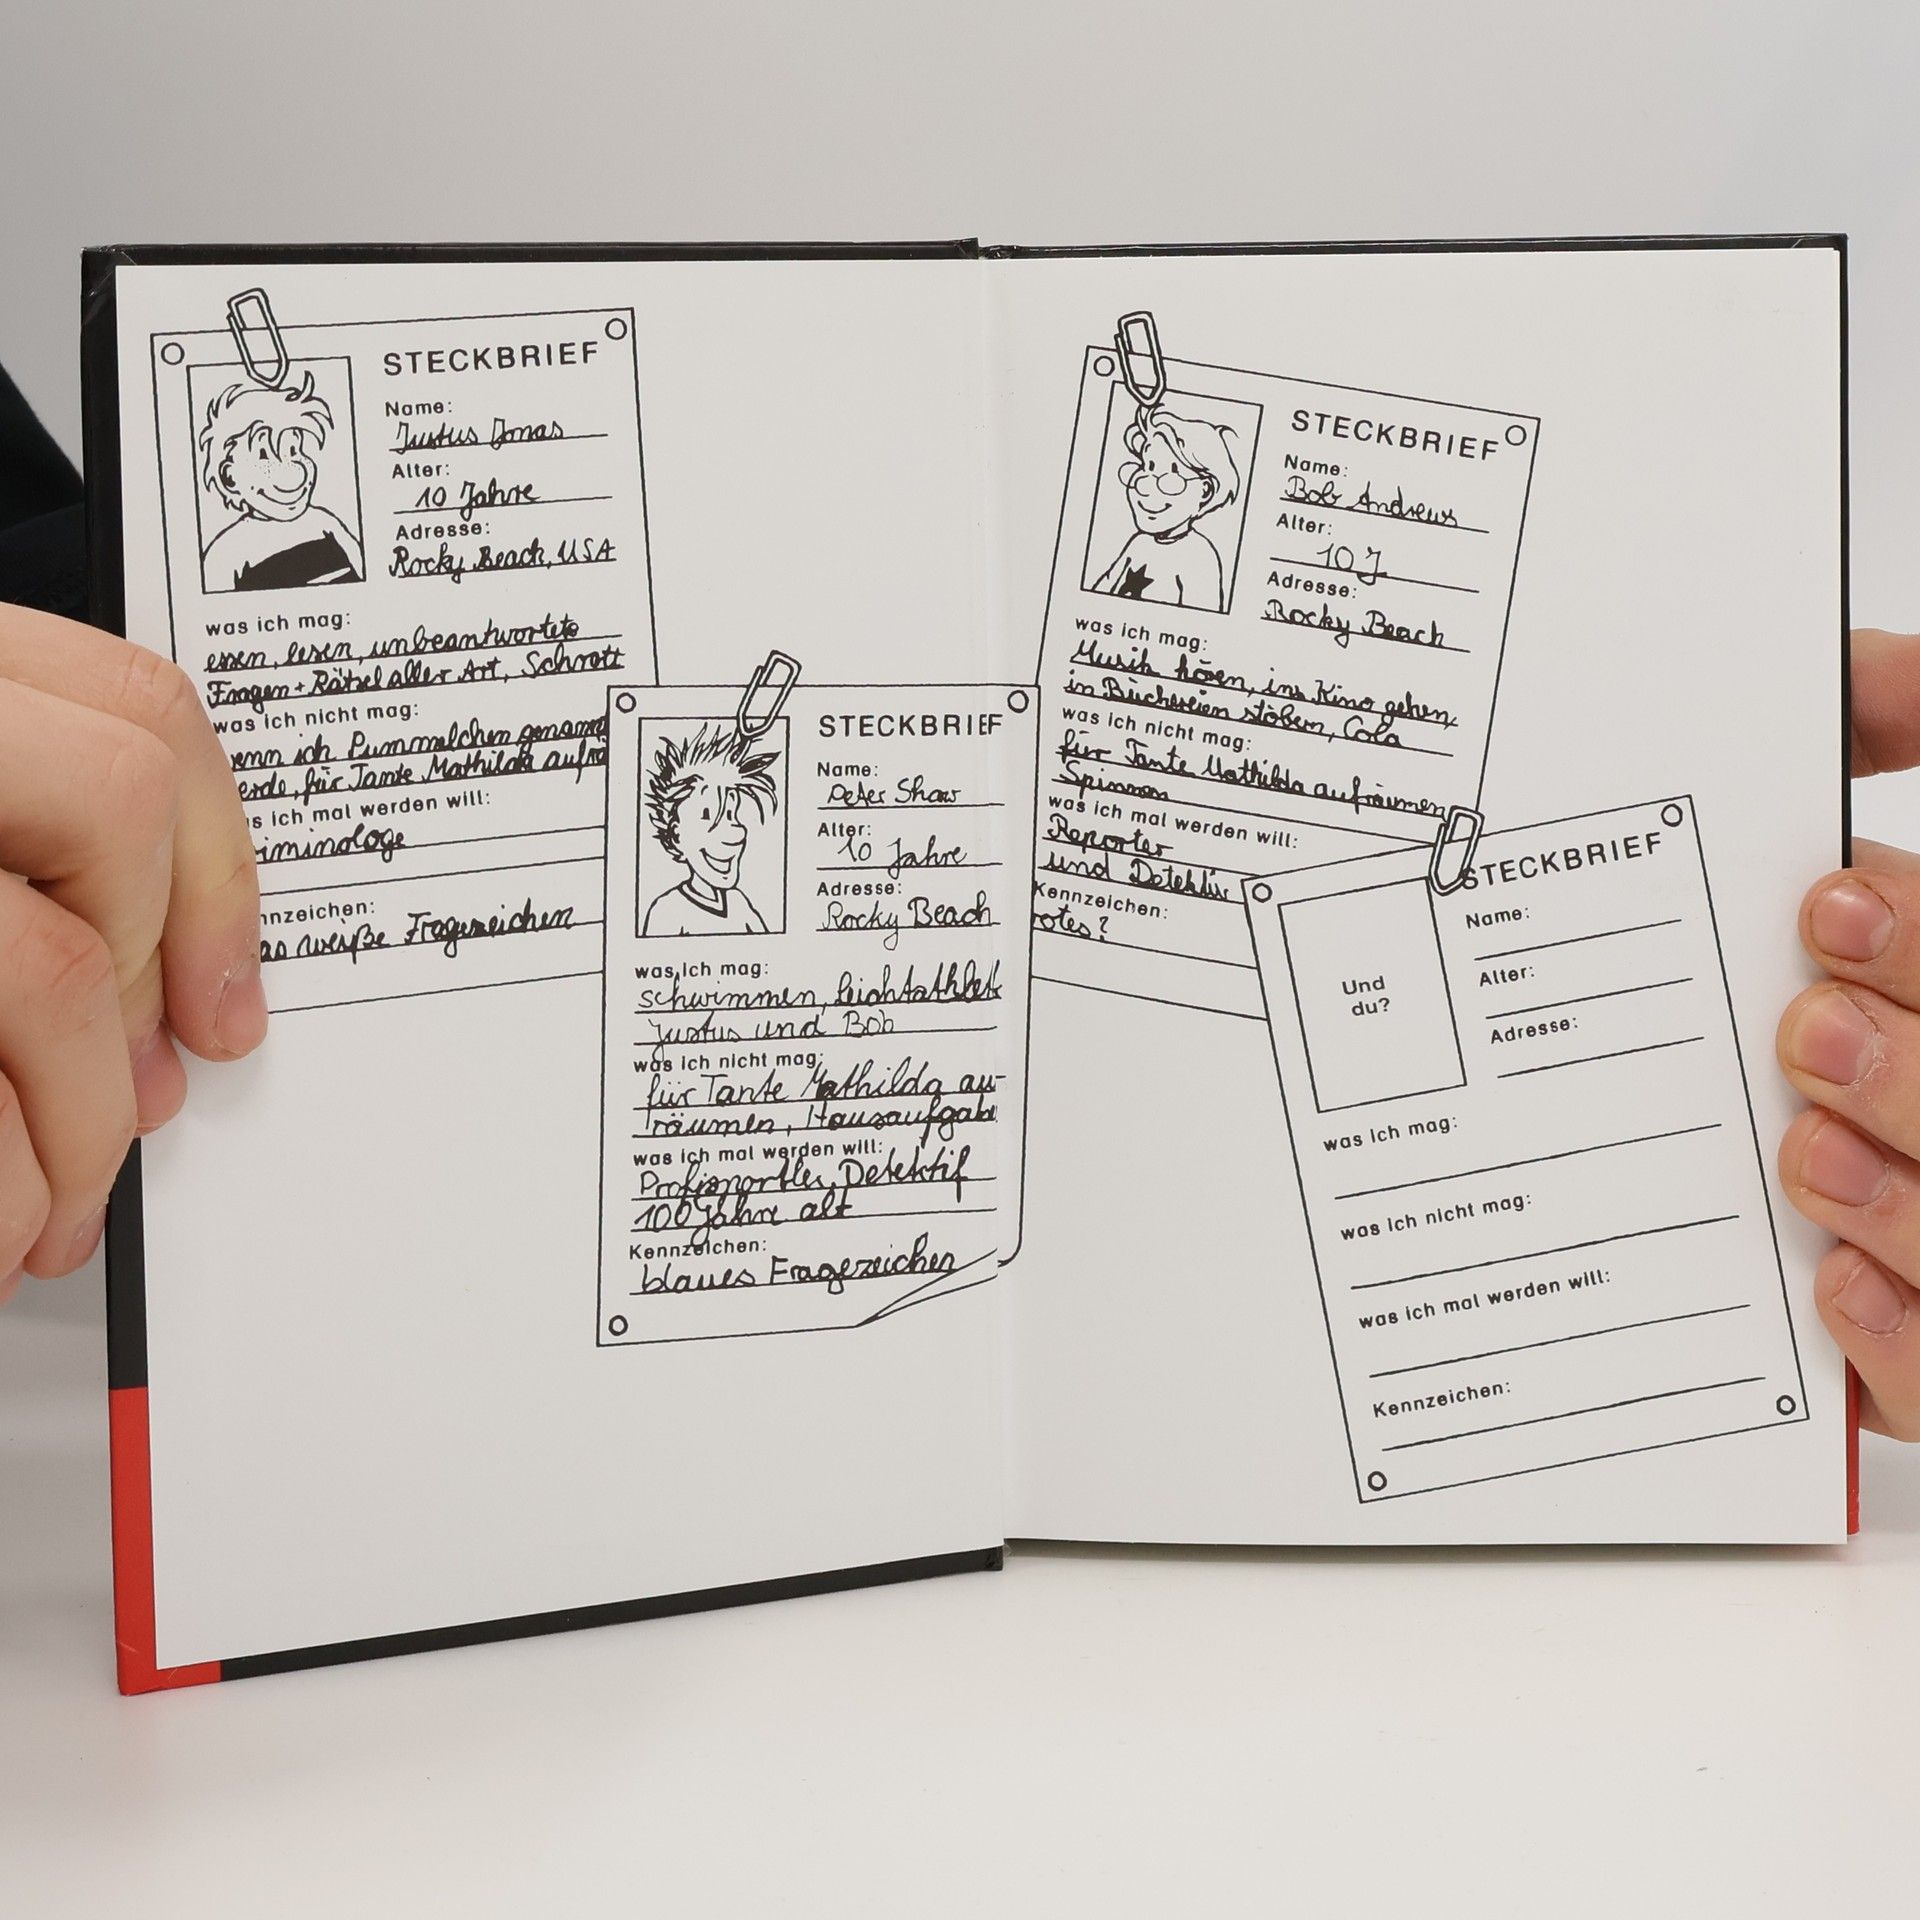 STECKBRIEF
Name:
Justus Jonas
Alter:
10 Jahre
Adresse:
Rocky Beach, USA
was ich mag:
essen, lesen, unbeantwortete
Fragen + Rätsel aller Art, Schrott
was ich nicht mag:
wenn ich Pummelchen genannt
erde, für Tante Mathilda aufrä
s ich mal werden will:
riminologe
nnzeichen:
as weiße Fragezeichen
STECKBRIEF
Name:
Peter Shaw
Alter:
10 Jahre
Adresse:
Rocky Beach
was ich mag:
schwimmen, leichtathlet
Justus und Bob
was ich nicht mag:
für Tante Mathilda au-
räumen, Hausaufgabe
was ich mal werden will:
Profisportler, Detektif
100 Jahre alt
Kennzeichen:
blaues Fragezeichen
STECKBRIEF
Name:
Bob Andrews
Alter:
10 J
Adresse:
Rocky Beach
was ich mag:
Musik hören, ins Kino gehen,
in Büchereien stöbern, Cola
was ich nicht mag:
für Tante Mathilda aufräumen
Spinnen
was ich mal werden will:
Reporter
und Detektiv
Kennzeichen:
rotes?
STECKBRIEF
Und
du?
Name:
Alter:
Adresse:
was ich mag:
was ich nicht mag:
was ich mal werden will:
Kennzeichen: